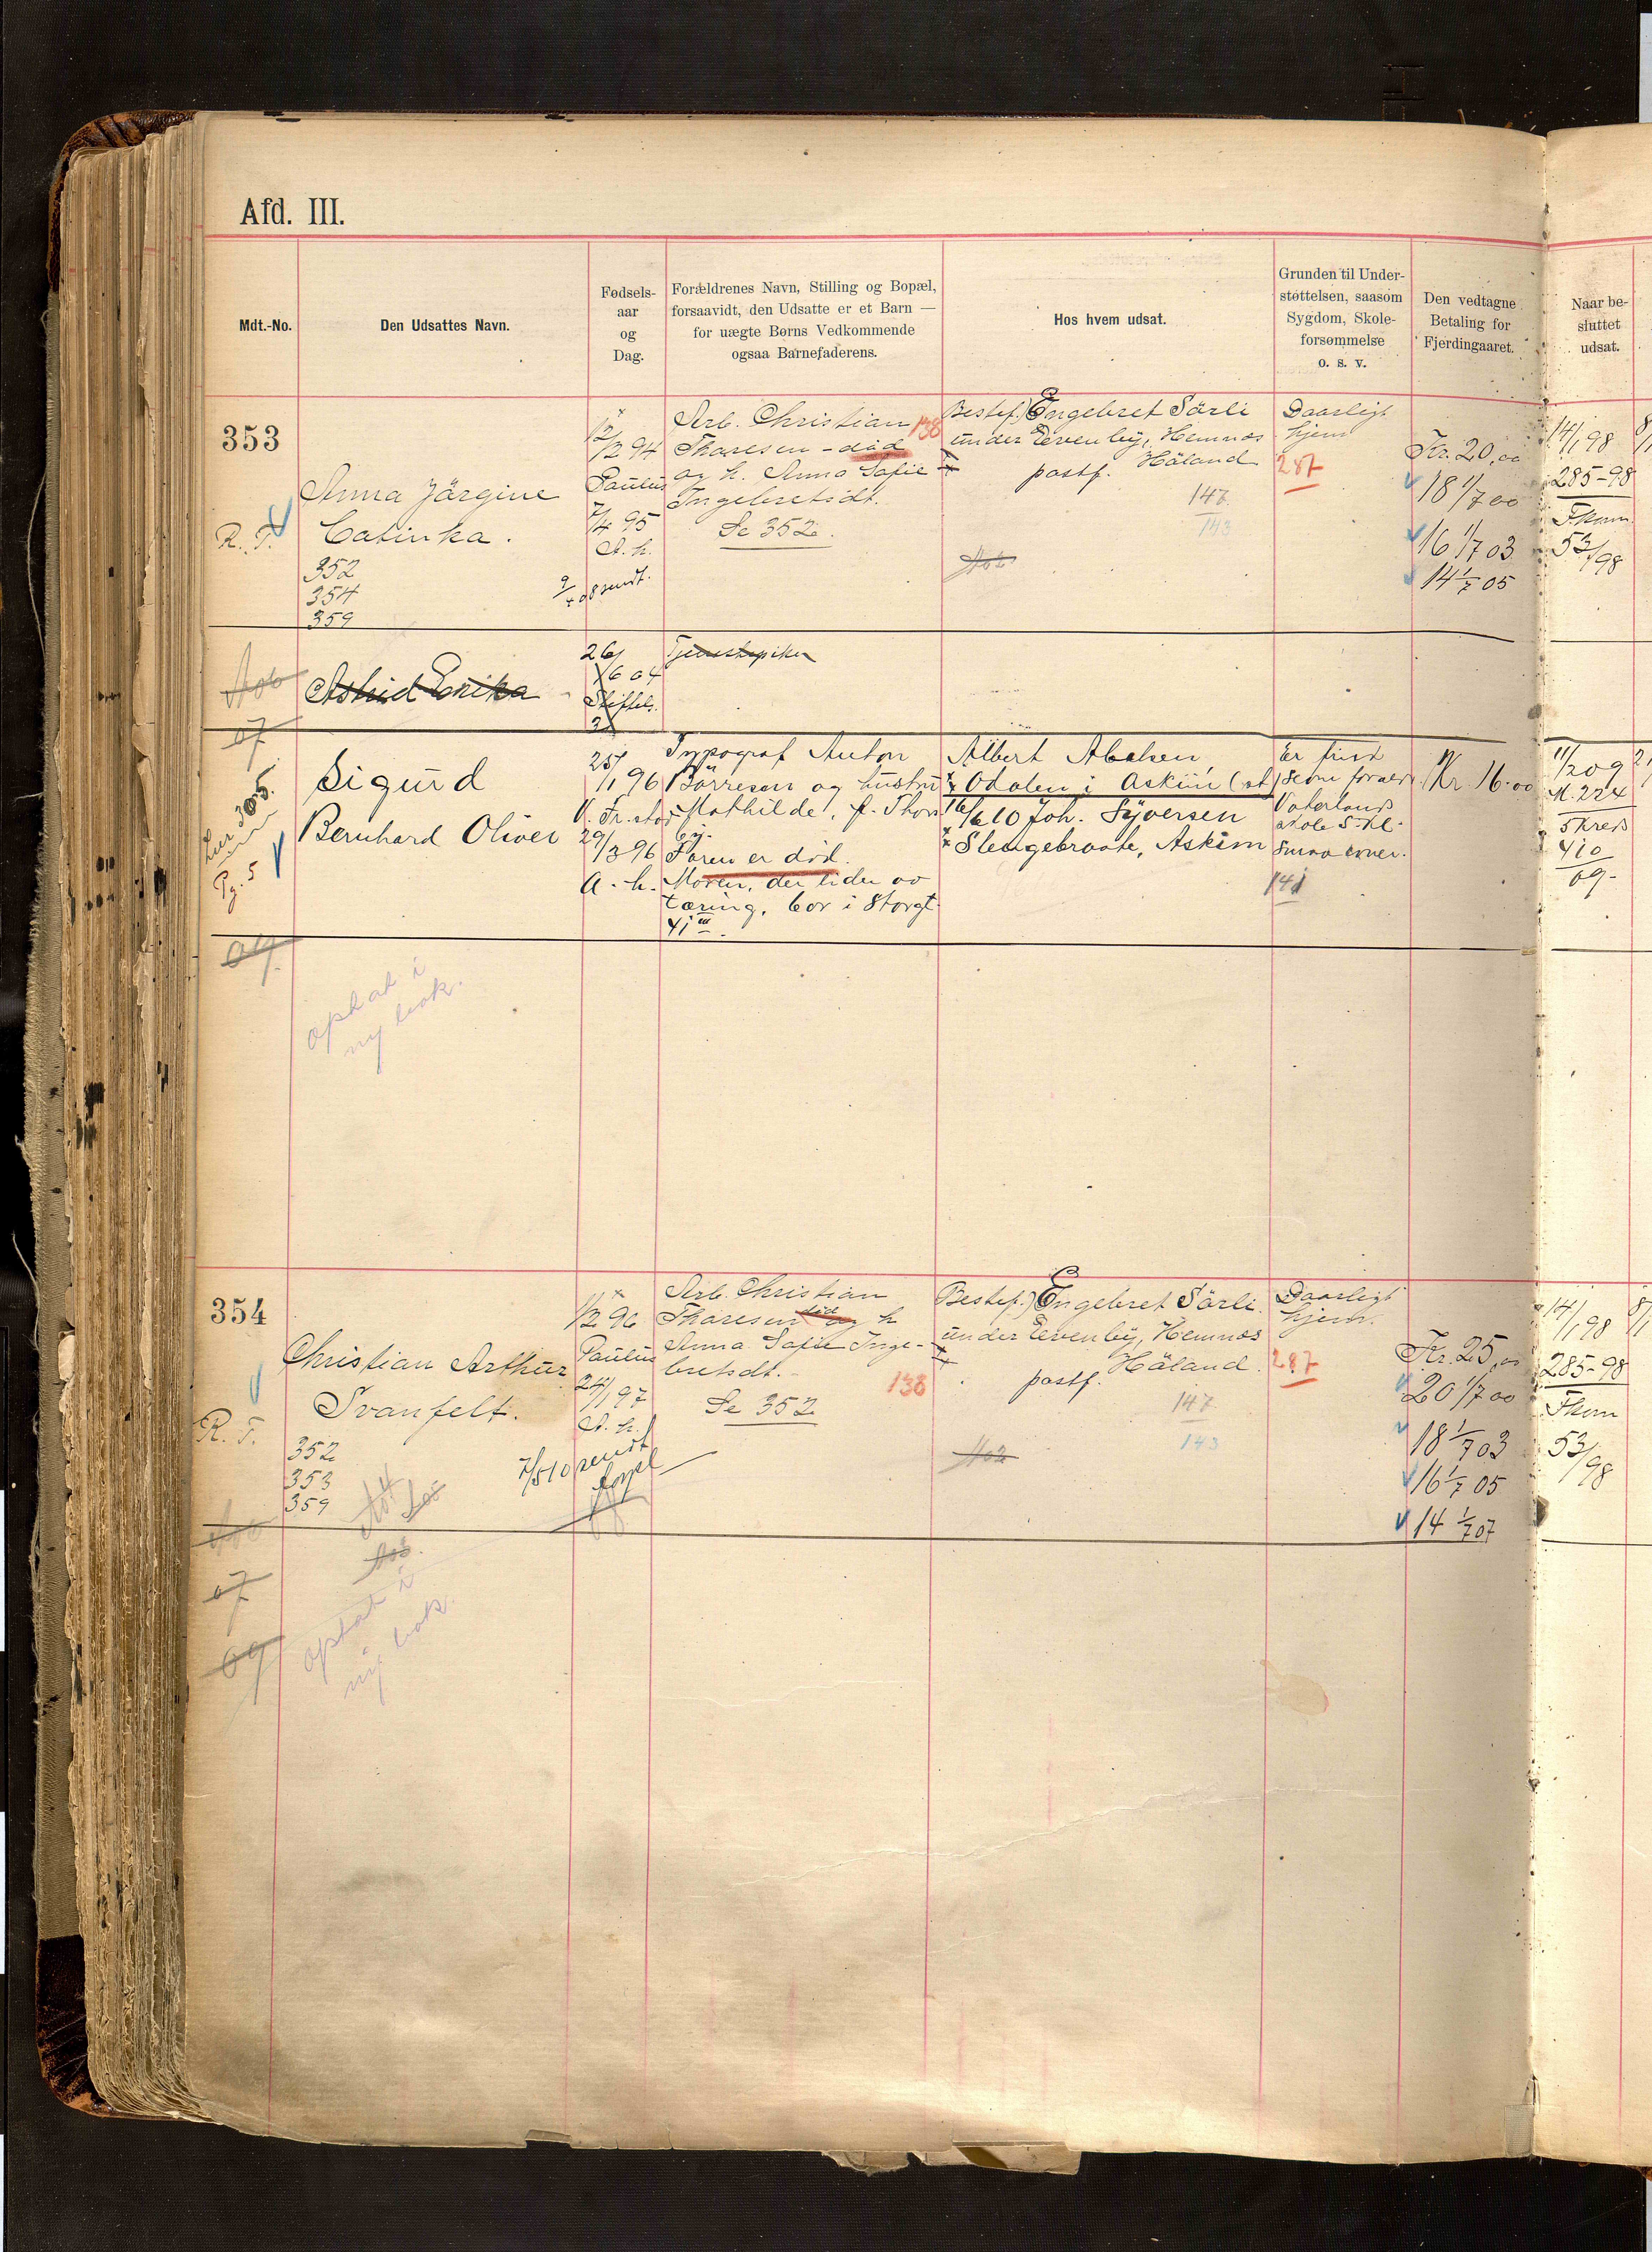 Afd. III.
Mdt.-No.
Den Udsattes Navn.
Fødsels-
aar
og
Dag.
Forældrenes Navn, Stilling og Bopæl,
forsaavidt, den Udsatte er et Barn —
for uægte Børns Vedkommende
ogsaa Barnefaderens.
Hos hvem udsat.
Grunden til Under-
støttelsen, saasom
Sygdom, Skole-
forsømmelse
o. s. v.
Den vedtagne
Betaling for
Fjerdingaaret.
Naar be-
sluttet
udsat.
353
R. T.
Anna Jörgine
Catinka.
352
354
359
12/2 94
Paulus
7/4 95
A. h.
Arb. Christian 138
Thoresen - död
og h. Anna Sofie
Ingebretsdt.
Se 352.
Bestef.) Engebret Sörli
under Evenby, Hemnes
postf. Höland
147
143
Daarligt
hjem
287
Kr. 20,00
18 1/7 00
16 1/7 03
14 1/7 05
14/1 98
285-98
Fkom.
53/98
Astrid Enika
26/
6 04
Tjenestepike
07
Sigurd
Bernhard Oliver
Pg. 5
25/
1 96
29/3 96
A. h.
Typograf Anton
Börresen og hustru
Mathilde, f. Thors
by.
Faren er död.
Moren, der lider av
tæring, bor i Storgt.
41 III.
Albert Abelsen,
Odalen i Askim (st)
16/6 10 Joh. Syversen
Slengebraate, Askim
Er frisk
Vaterlands
skole 5 kl.
Smaa evner.
141
Kr 16.00
11/2 09
M. 224
5 kreds
410
09
09.
optat i
ny bok.
354
R. T.
Christian Arthur
Svanfelt.
352
353
359
1/2 96
Paulus
24/1 97
A. h.
7/5 10 sendt
Arb. Christian
Thoresen död og h
Anna Sofie Inge-
bretsdt.
138
Se 352
Bestef.) Engebret Sörli
under Evenby, Hemnes
Höland.
postf.
147
143
Daarligt
hjem.
287
Kr. 25,00
20 1/7 00
18 1/7 03
16 1/7 05
14 1/7 07
14/1 98
285-98
Fkom
53/98
07
09
optat i
ny bok.